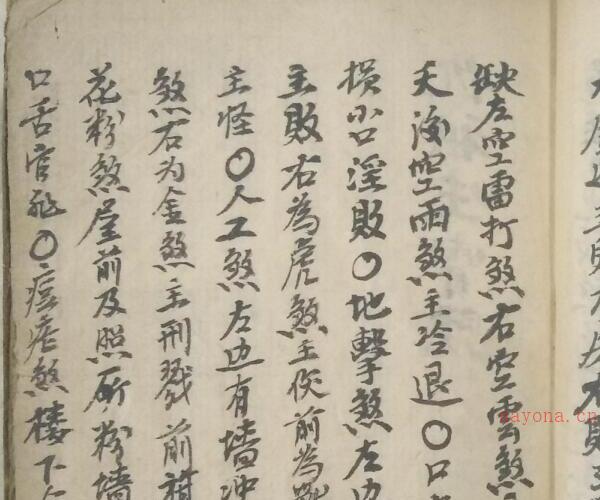 缺左空雷打煞右空雲煞
天後空雨煞主冷退〇口
損小口淫敗〇地擊煞左边
主敗右為虎煞主伤前為
主怪〇人工煞左边有墻冲
煞右为金煞主刑戮前
花粉煞屋前及照所粉墻
口舌官非〇瘟疟煞楼下
zayona.cn